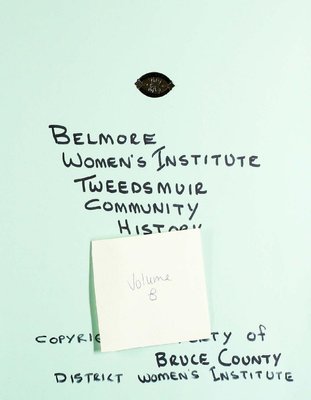 BELMORE
WOMEN'S INSTITUTE
TWEEDSMUIR
COMMUNITY
HISTORY
Volume
B
COPYRIG RTY of
BRUCE COUNTY
DISTRICT WOMEN'S INSTITUTE